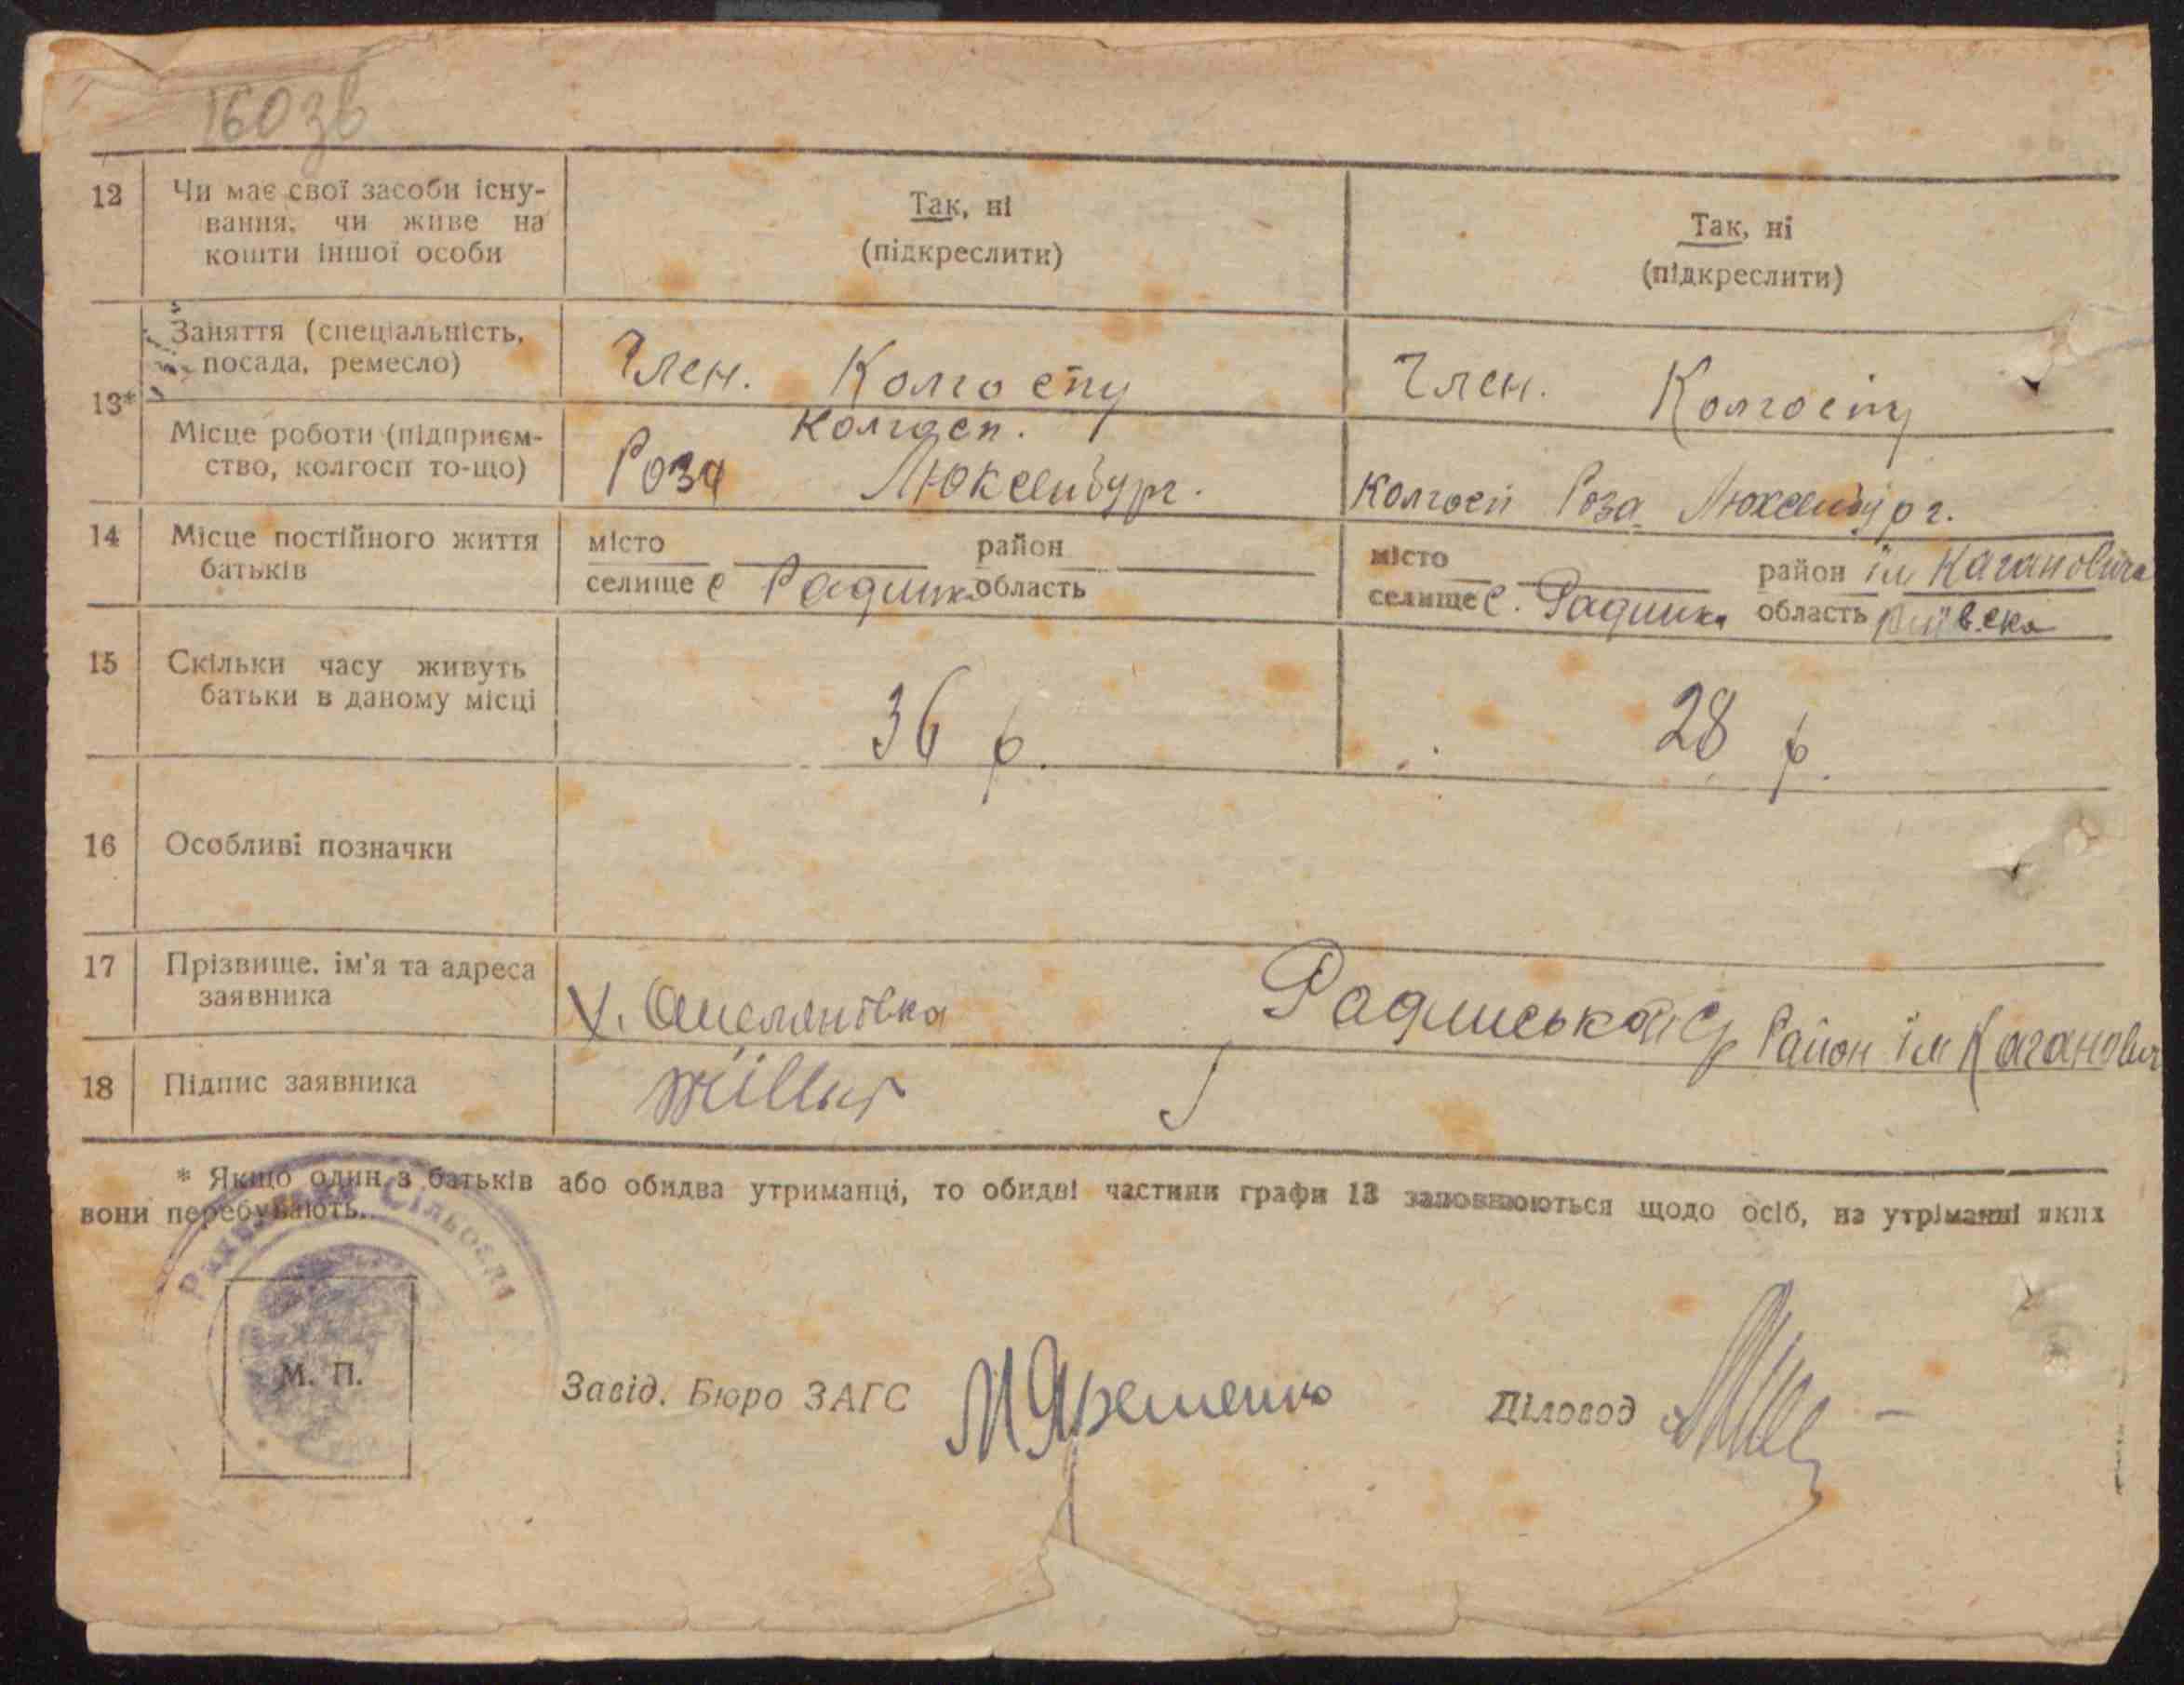 160 зв
12 Чи має свої засоби існу-
вання, чи живе на
кошти іншої особи
Так, ні
(підкреслити)
Так, ні
(підкреслити)
13*
Заняття (спеціальність,
посада, ремесло)
Член. Колгоспу
Член. Колгоспу
Місце роботи (підприєм-
ство, колгосп то-що)
Колгосп.
Роза Люксембург.
Колгосп Роза Люксембург.
14 Місце постійного життя
батьків
місто район
селище с Радинка область
місто район ім Кагановича
селище с. Радинка область Київська
15 Скільки часу живуть
батьки в даному місці
36 р.
28 р.
16 Особливі позначки
17 Прізвище, ім'я та адреса
заявника
х. Омелянівка Район ім Каганович
18 Підпис заявника
* Якщо один з батьків або обидва утриманці, то обидві частини графи 13 заповнюються щодо осіб, на утріманні яких
вони перебувають.
Сільської
М. П.
Завід. Бюро ЗАГС
Діловод